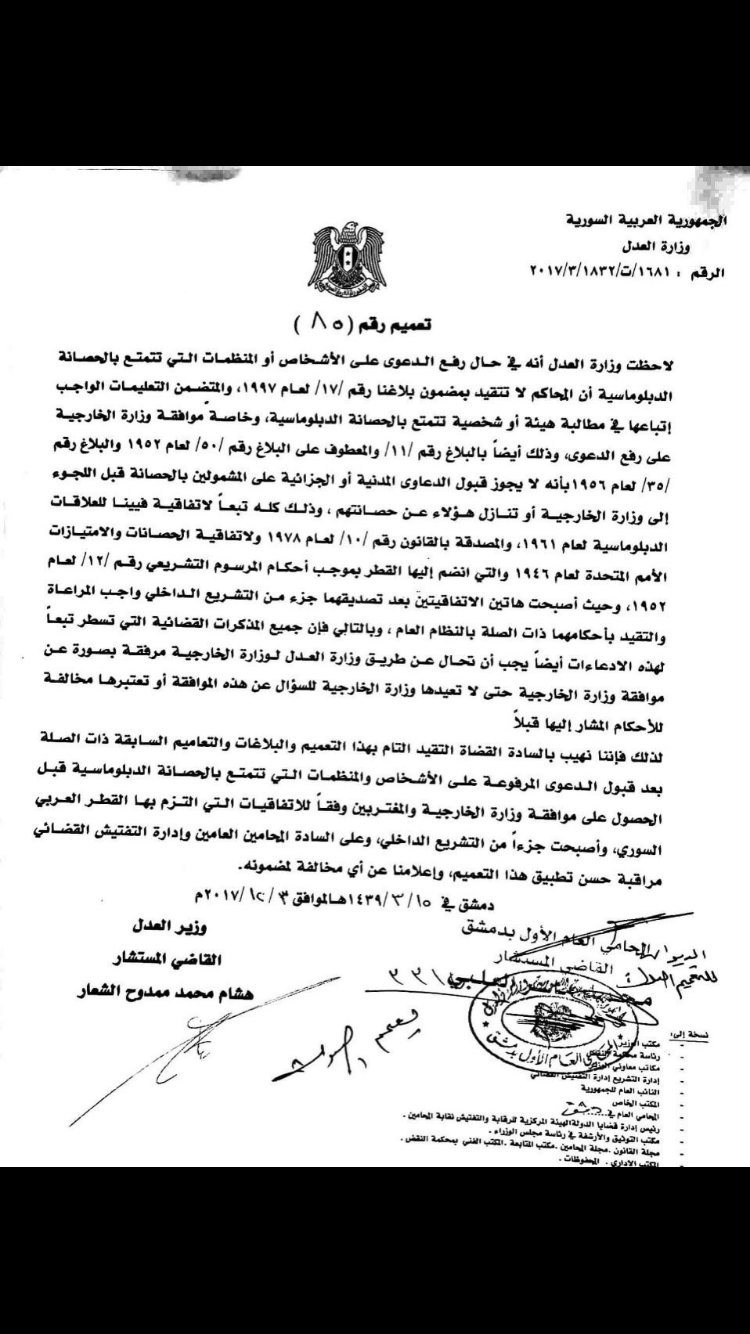 الجمهورية العربية السورية
وزارة العدل
الرقم : ١٦٨١/ت/٢٠١٧/٣/١٨٣٢
تعميم رقم (٨٥)
لاحظت وزارة العدل أنه في حال رفع الدعوى على الأشخاص أو المنظمات التي تتمتع بالحصانة
الدبلوماسية أن المحاكم لا تتقيد بمضمون بلاغنا رقم /١٧/ لعام ١٩٩٧، والمتضمن التعليمات الواجب
إتباعها في مطالبة هيئة أو شخصية تتمتع بالحصانة الدبلوماسية، وخاصةً موافقة وزارة الخارجية
على رفع الدعوى، وذلك أيضاً بالبلاغ رقم /١١/ والمعطوف على البلاغ رقم /٥٠/ لعام ١٩٥٢ والبلاغ رقم
/٣٥/ لعام ١٩٥٦بأنه لا يجوز قبول الدعاوى المدنية أو الجزائية على المشمولين بالحصانة قبل اللجوء
إلى وزارة الخارجية أو تنازل هؤلاء عن حصانتهم ، وذلك كله تبعاً لاتفاقية فيينا للعلاقات
الدبلوماسية لعام ١٩٦١، والمصدقة بالقانون رقم /١٠/ لعام ١٩٧٨ ولاتفاقية الحصانات والامتيازات
الأمم المتحدة لعام ١٩٤٦ والتي انضم إليها القطر بموجب أحكام المرسوم التشريعي رقم /١٢/ لعام
١٩٥٢، وحيث أصبحت هاتين الاتفاقيتين بعد تصديقهما جزء من التشريع الداخلي واجب المراعاة
والتقيد بأحكامهما ذات الصلة بالنظام العام ، وبالتالي فإن جميع المذكرات القضائية التي تسطر تبعاً
لهذه الادعاءات أيضاً يجب أن تحال عن طريق وزارة العدل لوزارة الخارجية مرفقة بصورة عن
موافقة وزارة الخارجية حتى لا تعيدها وزارة الخارجية للسؤال عن هذه الموافقة أو تعتبرها مخالفة
للأحكام المشار إليها قبلاً
لذلك فإننا نهيب بالسادة القضاة التقيد التام بهذا التعميم والبلاغات والتعاميم السابقة ذات الصلة
بعد قبول الدعوى المرفوعة على الأشخاص والمنظمات التي تتمتع بالحصانة الدبلوماسية قبل
الحصول على موافقة وزارة الخارجية والمغتربين وفقاً للاتفاقيات التي التزم بها القطر العربي
السوري، وأصبحت جزءاً من التشريع الداخلي، وعلى السادة المحامين العامين وإدارة التفتيش القضائي
مراقبة حسن تطبيق هذا التعميم، وإعلامنا عن أي مخالفة لمضمونه.
دمشق في ١٤٣٩/٣/١٥هـالموافق ٢٠١٧/١٢/٣م
وزير العدل
القاضي المستشار
هشام محمد ممدوح الشعار
المحامي العام الأول بدمشق
القاضي المستشار
الديوان
للتعميم
٣٣١
يعمم
المحامي العام الأول بدمشق
نسخة إلى:
- مكتب الوزير
- رئاسة محكمة النقض
- مكاتب معاوني الوزير
- إدارة التشريع إدارة التفتيش القضائي
- النائب العام للجمهورية
- المكتب الخاص
- المحامي العام في دمشق
- رئيس إدارة قضايا الدولة الهيئة المركزية للرقابة والتفتيش نقابة المحامين .
- مكتب التوثيق والأرشفة في رئاسة مجلس الوزراء .
- مجلة القانون .مجلة المحامين .مكتب المتابعة .المكتب الفني بمحكمة النقض .
- المكتب الاداري . المحفوظات .